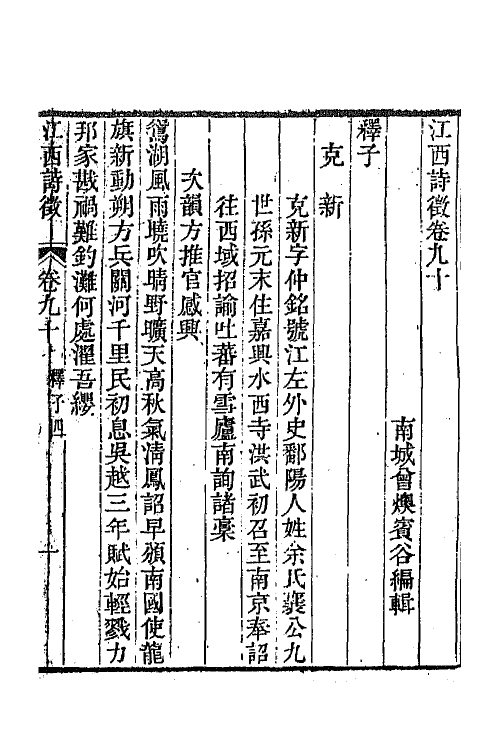 江西詩徵卷九十
南城曾燠賓谷編輯
釋子
克新
克新字仲銘號江左外史鄱陽人姓余氏襄公九
世孫元末住嘉興水西寺洪武初召至南京奉詔
往西域招諭吐蕃有雪廬南詢諸稾
次韻方推官感興
鴛湖風雨曉吹晴野曠天高秋氣清鳳詔早頒南國使龍
旗新動朔方兵關河千里民初息吳越三年賦始輕戮力
邦家戡禍難釣灘何處濯吾纓
江西詩徵
卷九十
釋子四
一